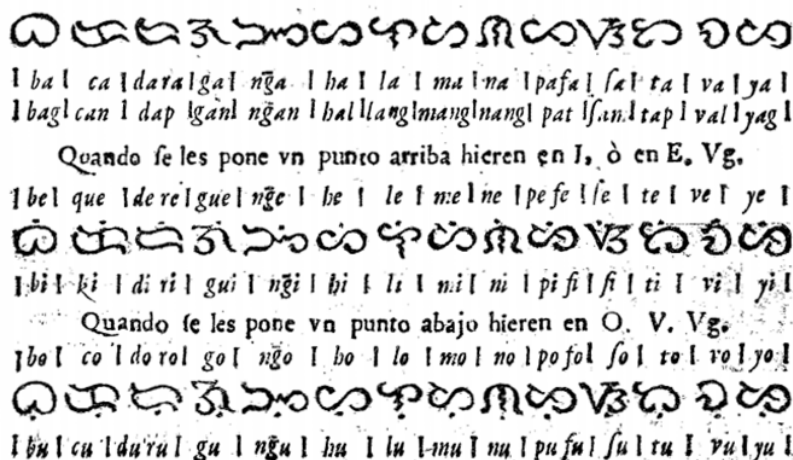 ᜊ ᜃ ᜇ ᜄ ᜅ ᜑ ᜎ ᜋ ᜈ ᜉ ᜐ ᜆ ᜏ ᜌ
| ba | ca | dara | ga | ng̃a | ha | la | ma | na | pafa | ſa | ta | va | ya |
| bag | can | dap | gan | ng̃an | hal | lang | mang | nang | pat | ſan | tap | val | yag |
Quando ſe les pone vn punto arriba hieren en I, ò en E. Vg.
| be | que | de re | gue | ng̃e | he | le | me | ne | pe fe | ſe | te | ve | ye |
ᜊᜒ ᜃᜒ ᜇᜒ ᜄᜒ ᜅᜒ ᜑᜒ ᜎᜒ ᜋᜒ ᜈᜒ ᜉᜒ ᜐᜒ ᜆᜒ ᜏᜒ ᜌᜒ
| bi | ki | di ri | gui | ng̃i | hi | li | mi | ni | pi fi | ſi | ti | vi | yi |
Quando ſe les pone vn punto abajo hieren en O. V. Vg.
| bo | co | do ro | go | ng̃o | ho | lo | mo | no | po fo | ſo | to | vo | yo |
ᜊᜓ ᜃᜓ ᜇᜓ ᜄᜓ ᜅᜓ ᜑᜓ ᜎᜓ ᜋᜓ ᜈᜓ ᜉᜓ ᜐᜓ ᜆᜓ ᜏᜓ ᜌᜓ
| bu | cu | du ru | gu | ng̃u | hu | lu | mu | nu | pu fu | ſu | tu | vu | yu |